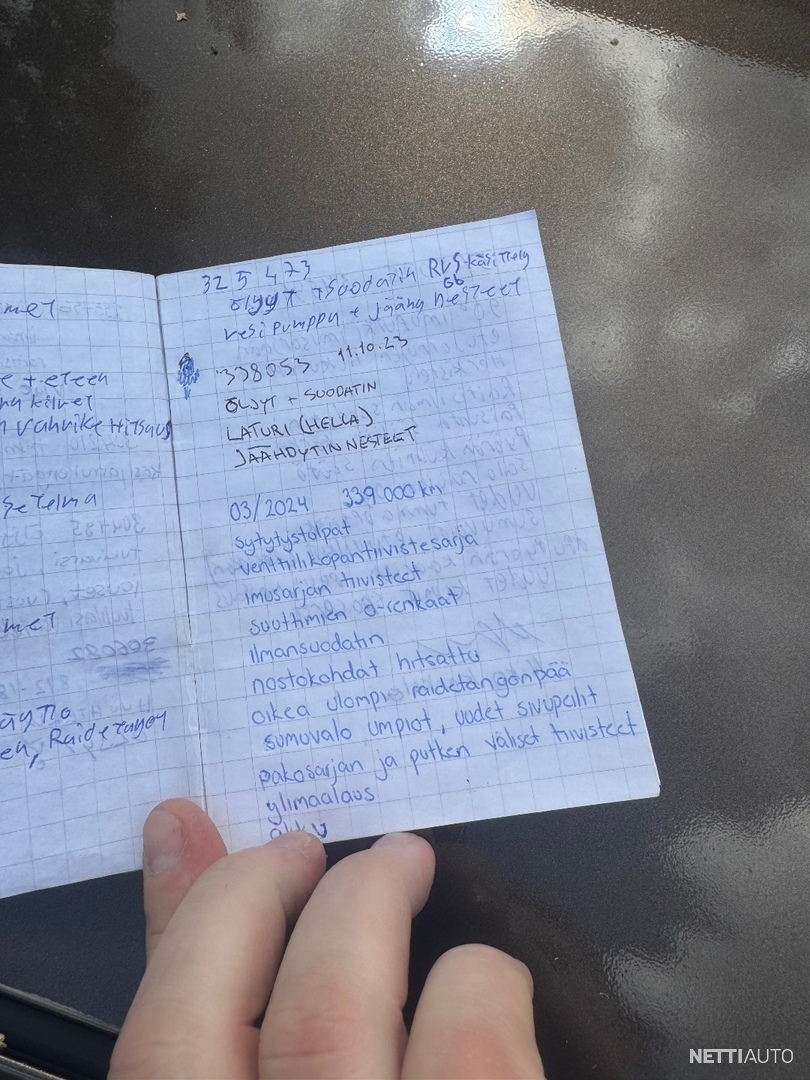 met
e + eteen
kilvet
vahvike Hitsaus
setelmä
met
äyttö
en, Raidetangon
325 473
öljyt + suodatin RVS käsittely
G6
vesipumppu + jäähy nesteet
338053 11.10.23
ÖLJYT + SUODATIN
LATURI (HELLA)
JÄÄHDYTINNESTEET
03/2024 339 000 km
sytytystolpat
venttiilikopantiivistesarja
imusarjan tiivisteet
suuttimien o-renkaat
ilmansuodatin
nostokohdat hitsattu
oikea ulompi raidetangonpää
sumuvalo umpiot, uudet sivupeilit
pakosarjan ja putken väliset tiivisteet
ylimaalaus
akku
NETTIAUTO